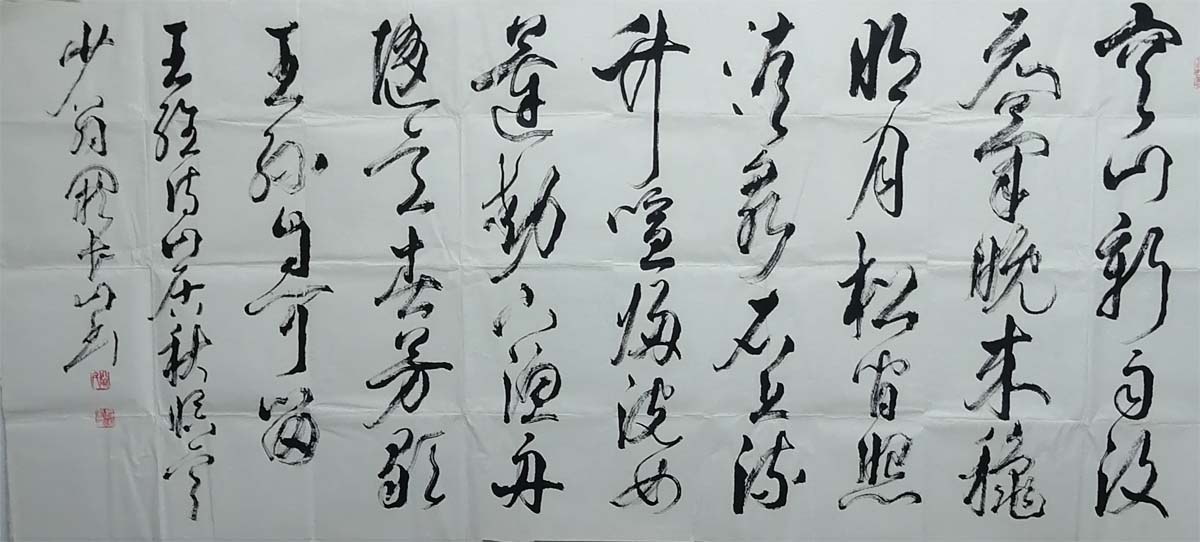 空山新雨後
天氣晚來穐
明月松間照
清泉石上流
竹喧歸浣女
蓮動下漁舟
隨意春芳歇
王孫自可留
王維詩山居秋暝
少翁山書